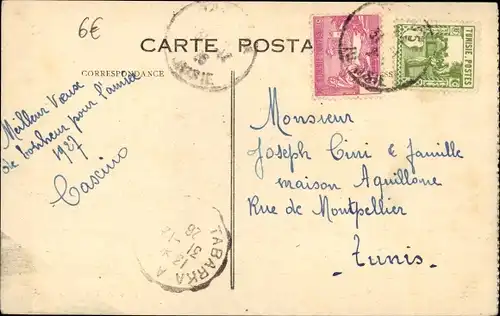 6€
CARTE POSTA
CORRESPONDANCE
Meilleur Vœux
de bonheur pour l'année
1927
Cascino
TUNISIE POSTES
Monsieur
Joseph Cini & famille
maison Aquillone
Rue de Montpellier
Tunis
TABARKA A